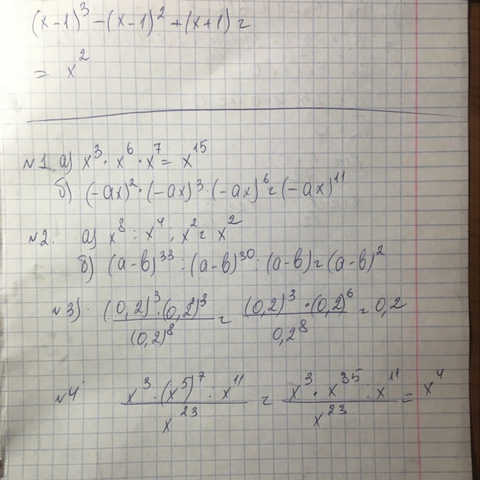 (x-1)³-(x-1)²+(x+1)=
= x²
№1. а) x³·x⁶·x⁷=x¹⁵
б) (-ax)²·(-ax)³·(-ax)⁶=(-ax)¹¹
№2. а) x⁸:x⁴:x²=x²
б) (a-b)³³:(a-b)³⁰:(a-b)=(a-b)²
№3) ((0,2)³·(0,2²)³)/(0,2)⁸ = ((0,2)³·(0,2)⁶)/0,2⁸ = 0,2
№4 (x³·(x⁵)⁷:x¹¹)/x²³ = (x³·x³⁵:x¹¹)/x²³ = x⁴